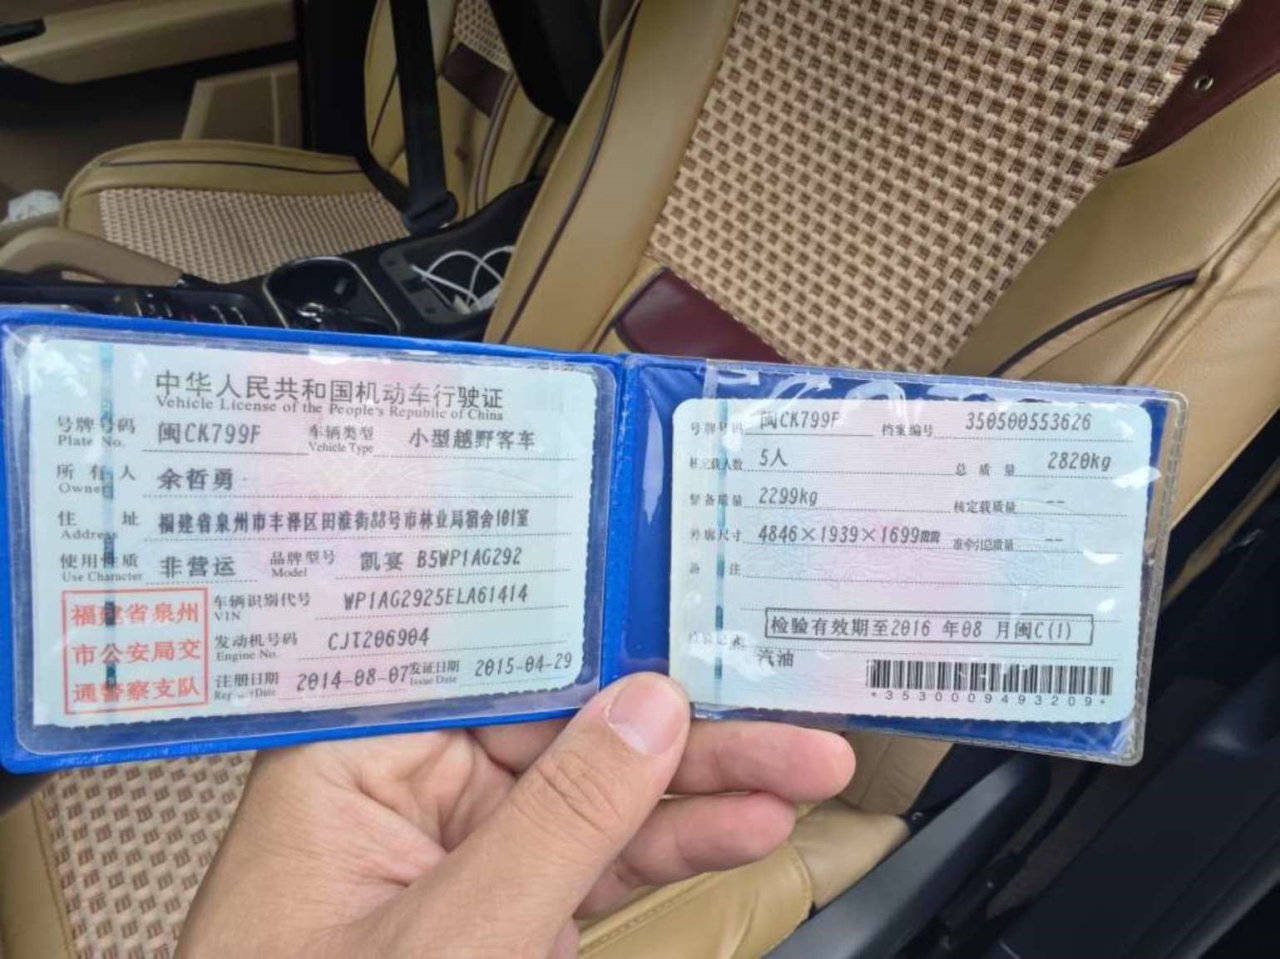 中华人民共和国机动车行驶证
Vehicle License of the People's Republic of China
号牌号码 闽CK799F 车辆类型 小型越野客车
Plate No. Vehicle Type
所有人 余哲勇
Owner
住址 福建省泉州市丰泽区田淮街88号市林业局宿舍101室
Address
使用性质 非营运 品牌型号 凯宴 B5WP1AG292
Use Character Model
福建省泉州
市公安局交
通警察支队
车辆识别代号 WP1AG2925ELA61414
VIN
发动机号码 CJT206904
Engine No.
注册日期 2014-08-07 发证日期 2015-04-29
Register Date Issue Date
号牌号码 闽CK799F 档案编号 350500553626
核定载人数 5人 总质量 2820kg
整备质量 2299kg 核定载质量 --
外廓尺寸 4846×1939×1699mm 准牵引总质量 --
备注
检验有效期至2016年08月闽C(1)
汽油
*3530009493209*